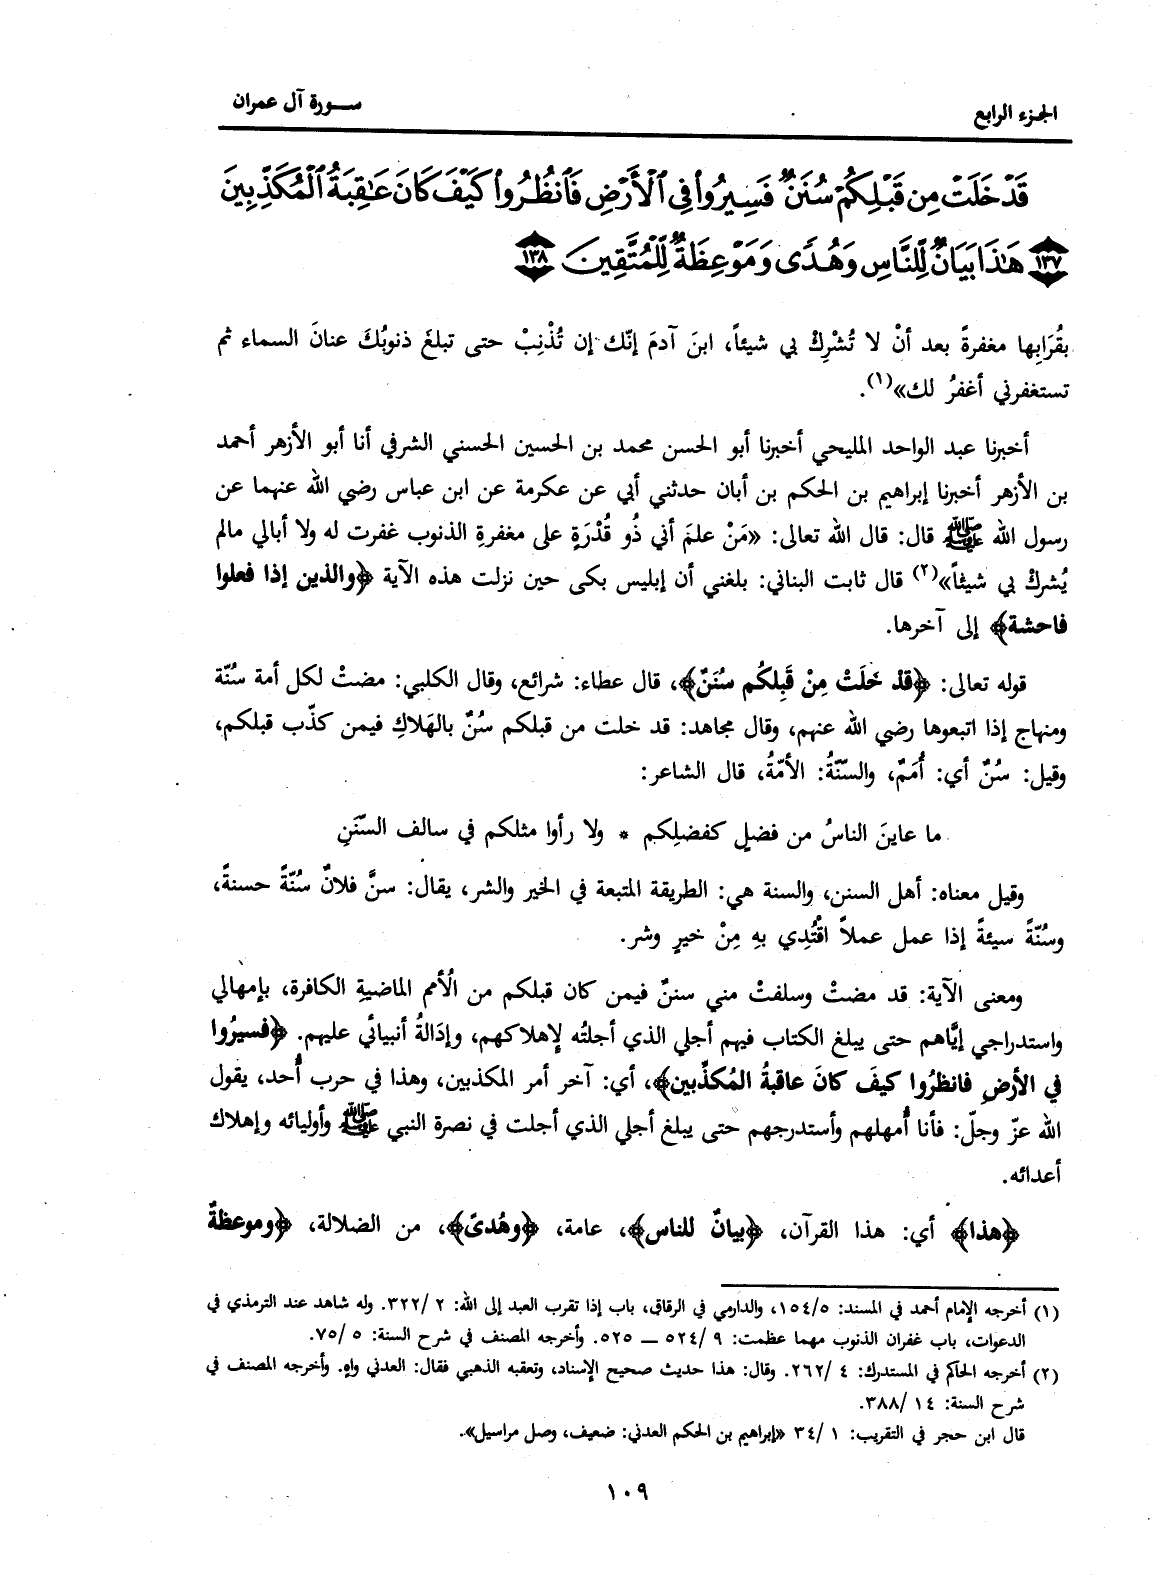 الجزء الرابع
سورة آل عمران
قَدْ خَلَتْ مِن قَبْلِكُمْ سُنَنٌ فَسِيرُوا فِي الْأَرْضِ فَانظُرُوا كَيْفَ كَانَ عَاقِبَةُ الْمُكَذِّبِينَ
﴿١٣٧﴾ هَٰذَا بَيَانٌ لِّلنَّاسِ وَهُدًى وَمَوْعِظَةٌ لِّلْمُتَّقِينَ ﴿١٣٨﴾
بقُرَابِها مغفرةً بعد أنْ لا تُشْرِكْ بي شيئاً، ابنَ آدمَ إنّك إن تُذْنِبْ حتى تبلغَ ذنوبُكَ عنانَ السماء ثم
تستغفرني أغفرُ لك»(١).
أخبرنا عبد الواحد المليحي أخبرنا أبو الحسن محمد بن الحسين الحسني الشرفي أنا أبو الأزهر أحمد
بن الأزهر أخبرنا إبراهيم بن الحكم بن أبان حدثني أبي عن عكرمة عن ابن عباس رضي الله عنهما عن
رسول الله ﷺ قال: قال الله تعالى: «مَنْ علمَ أني ذُو قُدْرَةٍ على مغفرةِ الذنوب غفرت له ولا أبالي مالم
يُشركْ بي شيئاً»(٢) قال ثابت البناني: بلغني أن إبليس بكى حين نزلت هذه الآية ﴿والذين إذا فعلوا
فاحشة﴾ إلى آخرها.
قوله تعالى: ﴿قدْ خَلَتْ مِنْ قَبِلكُم سُنَنٌ﴾، قال عطاء: شرائع، وقال الكلبي: مضتْ لكل أمة سُنّة
ومنهاج إذا اتبعوها رضي الله عنهم، وقال مجاهد: قد خلت من قبلكم سُنٌ بالهَلاكِ فيمن كذّب قبلكم،
وقيل: سُنٌ أي: أُمَمٌ، والسنّةُ: الأمّةُ، قال الشاعر:
ما عاينَ الناسُ من فضلٍ كفضلِكم * ولا رأوا مثلكم في سالف السنَنِ
وقيل معناه: أهل السنن، والسنة هي: الطريقة المتبعة في الخير والشر، يقال: سنَّ فلانٌ سُنّةً حسنةً،
وسُنّةً سيئةً إذا عمل عملاً اقْتُدِي بهِ مِنْ خيرٍ وشر.
ومعنى الآية: قد مضتْ وسلفتْ مني سننٌ فيمن كان قبلكم من الُأمم الماضيةِ الكافرة، بإمهالي
واستدراجي إيَّاهم حتى يبلغ الكتاب فيهم أجلي الذي أجلتُه لِإهلاكهم، وإدَالةُ أنبيائي عليهم. ﴿فسيرُوا
في الأرضِ فانظرُوا كيفَ كانَ عاقبةُ المُكذِّبين﴾، أي: آخر أمر المكذبين، وهذا في حرب أُحد، يقول
الله عزّ وجلّ: فأنا أُمهلهم وأستدرجهم حتى يبلغ أجلي الذي أجلت في نصرة النبي ﷺ وأوليائه وإهلاك
أعدائه.
﴿هذا﴾ أي: هذا القرآن، ﴿بيانٌ للناس﴾، عامة، ﴿وهُدىً﴾، من الضلالة، ﴿وموعظةٌ
(١) أخرجه الإمام أحمد في المسند: ١٥٤/٥، والدارمي في الرقاق، باب إذا تقرب العبد إلى الله: ٣٢٢/٢. وله شاهد عند الترمذي في
الدعوات، باب غفران الذنوب مهما عظمت: ٥٢٤/٩ ــ ٥٢٥. وأخرجه المصنف في شرح السنة: ٧٥/٥.
(٢) أخرجه الحاكم في المستدرك: ٢٦٢/٤. وقال: هذا حديث صحيح الإسناد، وتعقبه الذهبي فقال: العدني واهٍ. وأخرجه المصنف في
شرح السنة: ٣٨٨/١٤.
قال ابن حجر في التقريب: ٣٤/١ «إبراهيم بن الحكم العدني: ضعيف، وصل مراسيل».
١٠٩